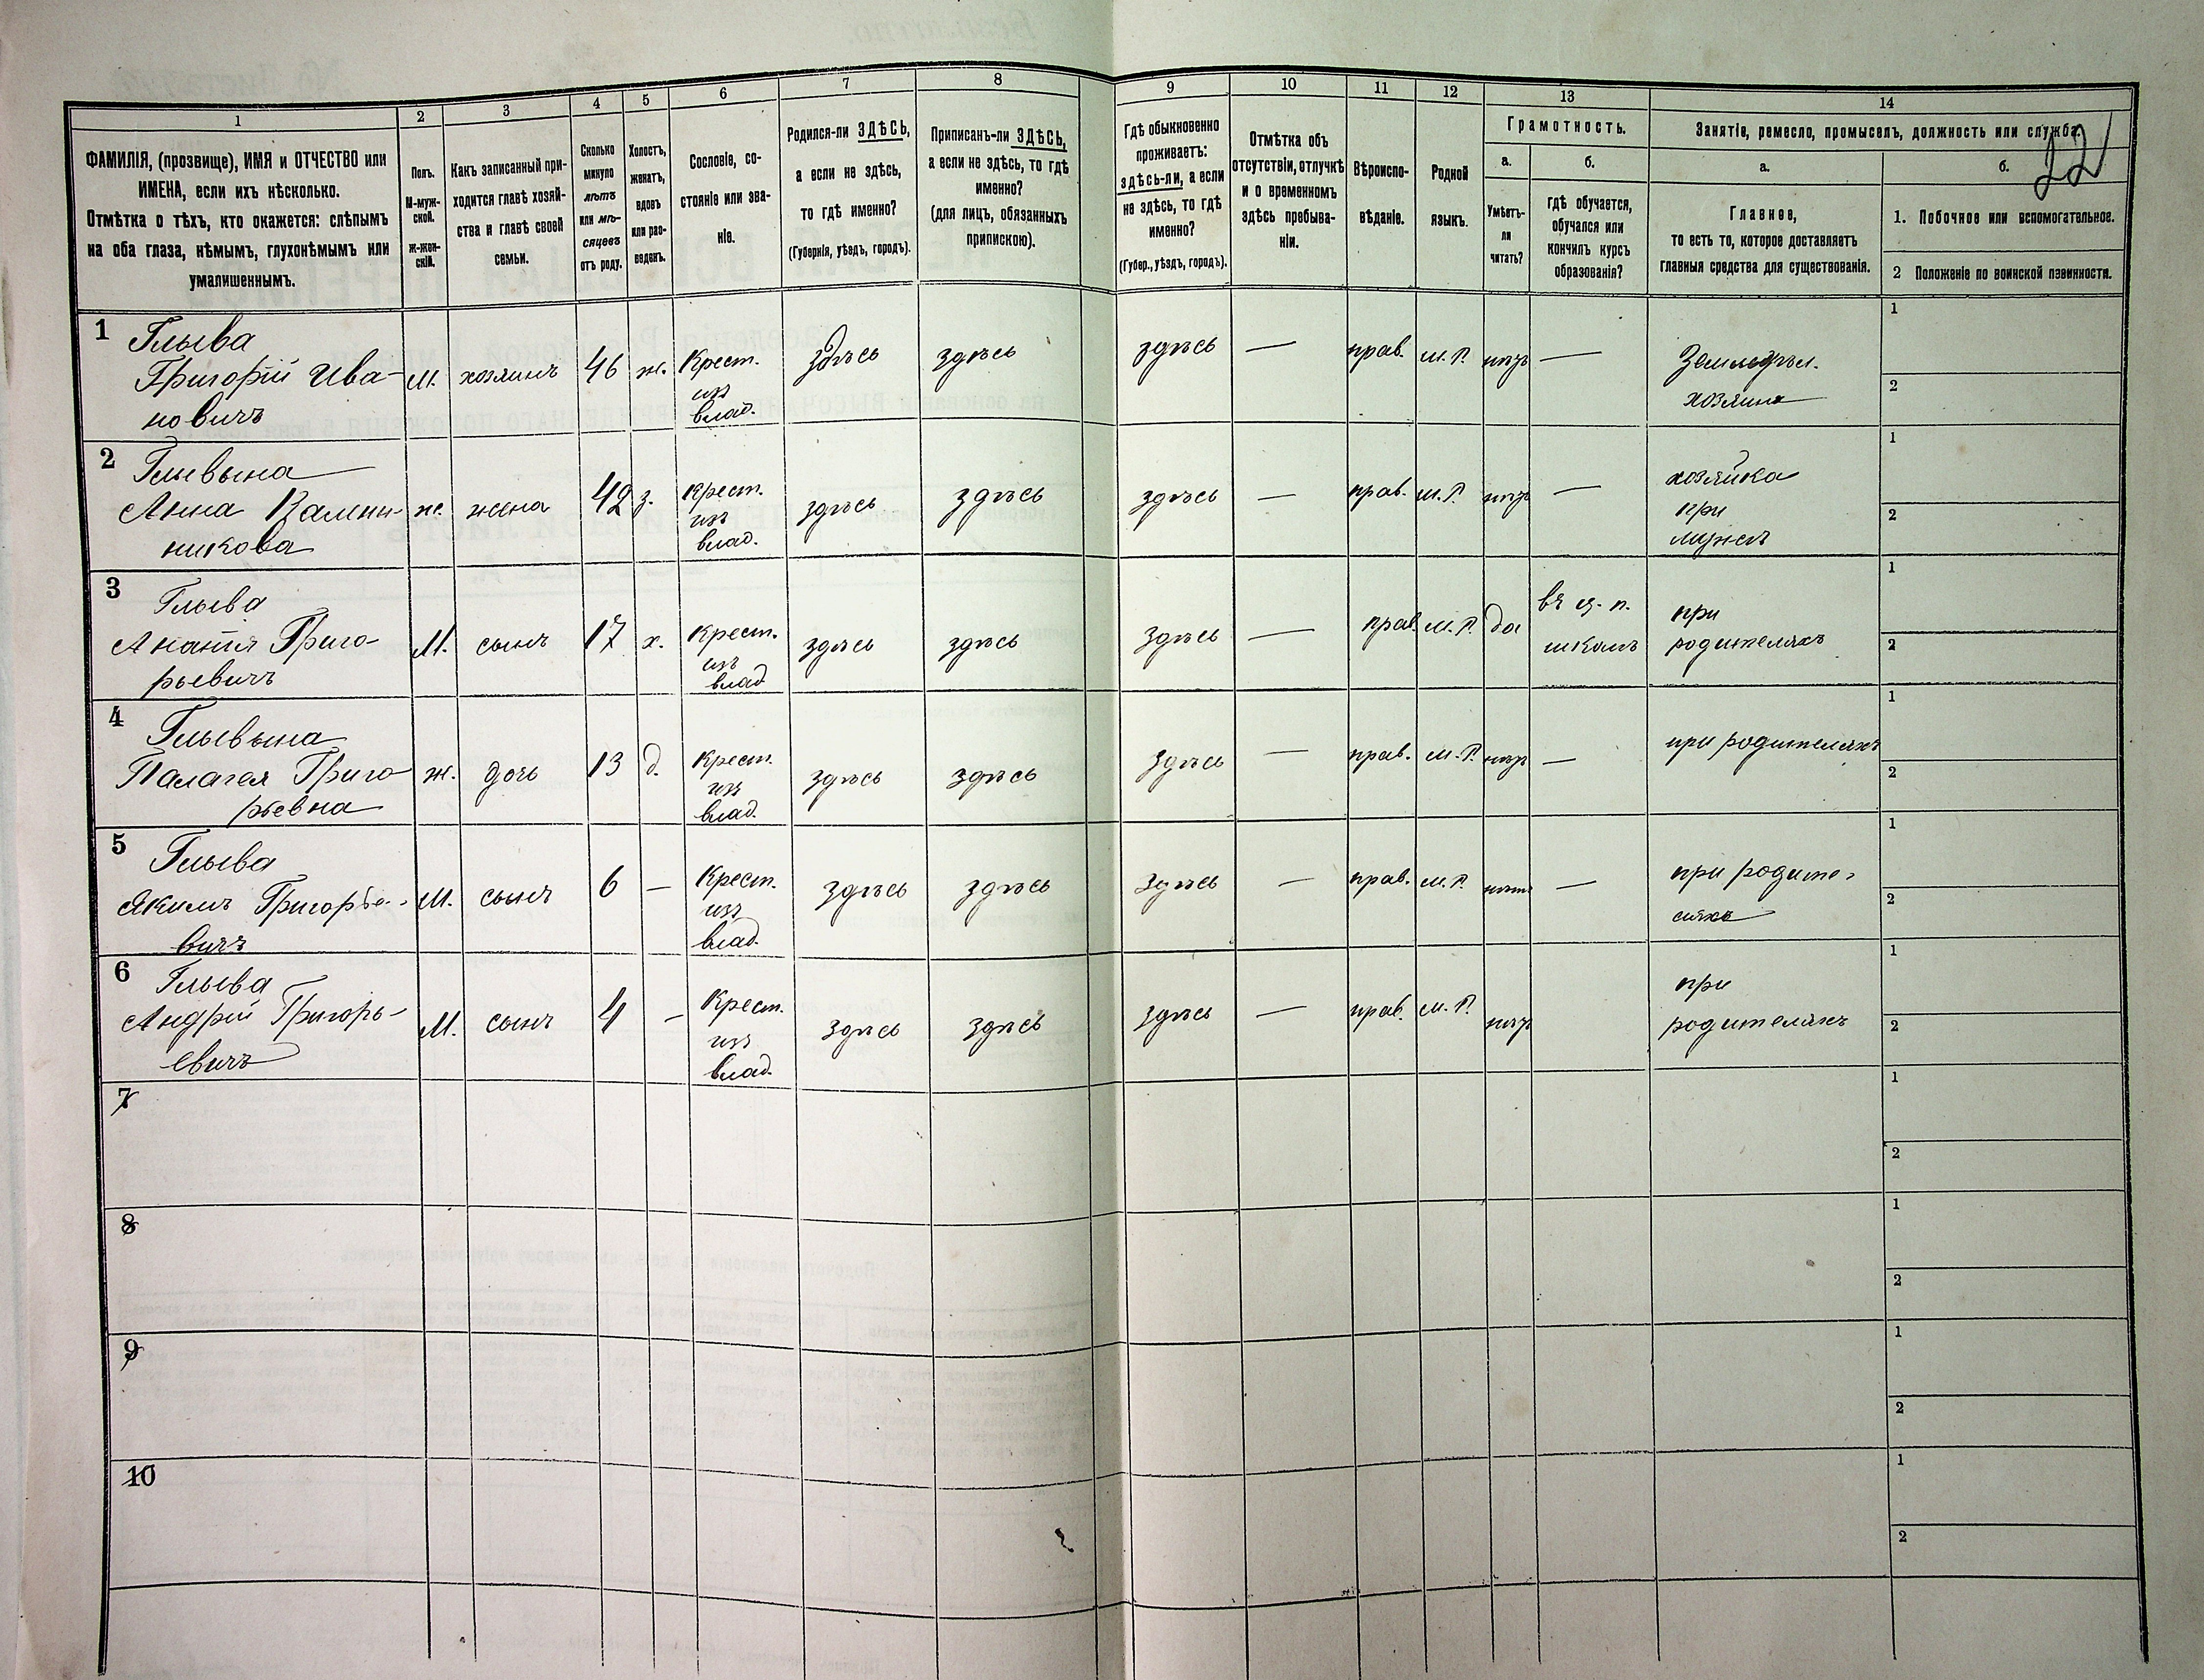 22
1 2 3 4 5 6 7 8 9 10 11 12 13 14
ФАМИЛІЯ, (прозвище), ИМЯ и ОТЧЕСТВО или
ИМЕНА, если ихъ нѣсколько.
Отмѣтка о тѣхъ, кто окажется: слѣпымъ
на оба глаза, нѣмымъ, глухонѣмымъ или
умалишеннымъ.
Полъ.
М-муж-
ской.
Ж-жен-
скій.
Какъ записанный при-
ходится главѣ хозяй-
ства и главѣ своей
семьи.
Сколько
минуло
лѣтъ
или мѣ-
сяцевъ
отъ роду.
Холостъ,
женатъ,
вдовъ
или раз-
веденъ.
Сословіе, со-
стояніе или зва-
ніе.
Родился-ли ЗДѢСЬ,
а если не здѣсь,
то гдѣ именно?
(Губернія, уѣздъ, городъ).
Приписанъ-ли ЗДѢСЬ,
а если не здѣсь, то гдѣ
именно?
(для лицъ, обязанныхъ
припискою).
Гдѣ обыкновенно
проживаетъ:
здѣсь-ли, а если
не здѣсь, то гдѣ
именно?
(Губер., уѣздъ, городъ).
Отмѣтка объ
отсутствіи, отлучкѣ
и о временномъ
здѣсь пребыва-
ніи.
Вѣроиспо-
вѣданіе.
Родной
языкъ.
Грамотность.
а.
Умѣетъ-
ли
читать?
б.
гдѣ обучается,
обучался или
кончилъ курсъ
образованія?
Занятіе, ремесло, промыселъ, должность или служба.
а.
Главное,
то есть то, которое доставляетъ
главныя средства для существованія.
б.
1. Побочное или вспомогательное.
2 Положеніе по воинской повинности.
1 Глыва
Григорій Ива-
новичъ
М. хозяинъ 46 ж. Крест.
изъ
влад.
здѣсь здѣсь здѣсь — прав. м. Р. нѣтъ —
Земледѣл.
хозяинъ
1
2
2 Глывына
Анна Калин-
никова
ж. жена 42 з. Крест.
изъ
влад.
здѣсь здѣсь здѣсь — прав. м. Р. нѣтъ —
хозяйка
при
мужѣ
1
2
3 Глыва
Анатія Григо-
рьевичъ
М. сынъ 17 х. Крест.
изъ
влад
здѣсь здѣсь здѣсь — прав. м. Р. да
въ ц. п.
школѣ
при
родителяхъ
1
2
4 Глывына
Палагея Григо-
рьевна
ж. дочь 13 д. Крест.
изъ
влад.
здѣсь здѣсь здѣсь — прав. м. Р. нѣтъ —
при родителяхъ
1
2
5 Глыва
Якимъ Григорье-
вичъ
М. сынъ 6 — Крест.
изъ
влад.
здѣсь здѣсь здѣсь — прав. м. Р. нѣтъ —
при родите-
ляхъ
1
2
6 Глыва
Андрій Григорь-
евичъ
М. сынъ 4 — Крест.
изъ
влад.
здѣсь здѣсь здѣсь — прав. м. Р. нѣтъ
при
родителяхъ
1
2
7
1
2
8
1
2
9
1
2
10
1
2